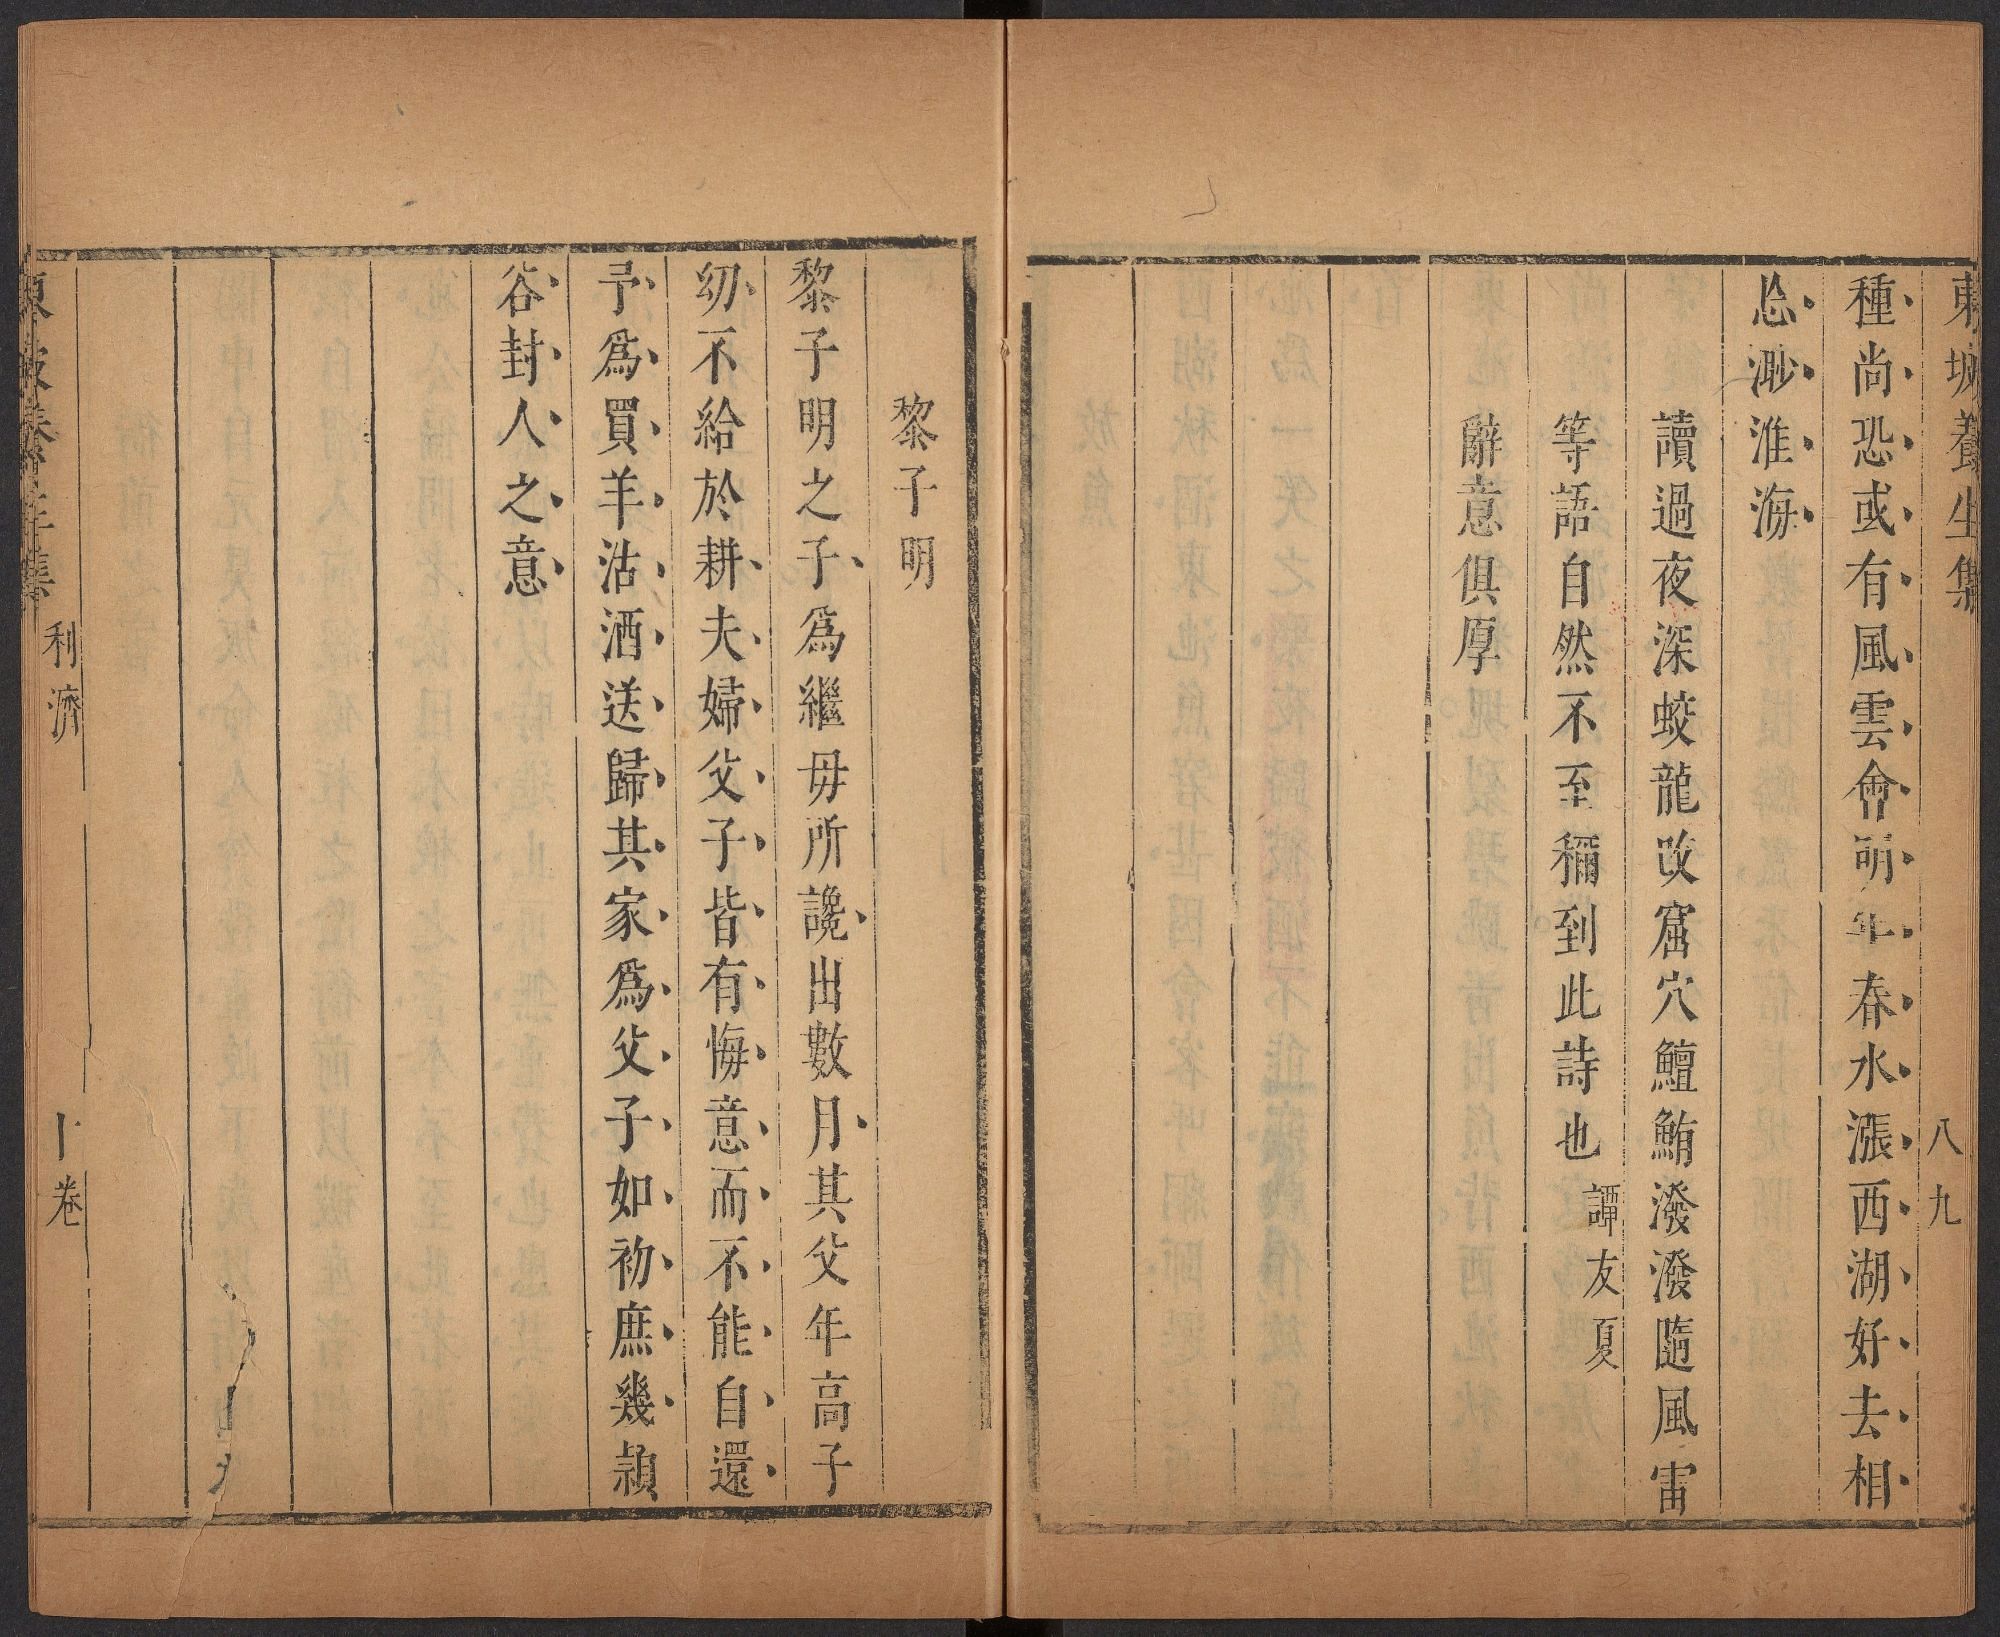 東坡養生集
八九
種尚恐或有風雲會明年春水漲西湖好去相
忘渺淮海
讀過夜深蛟龍改窟穴鱣鮪潑潑隨風雷
等語自然不至稱到此詩也 譚友夏
辭意俱厚
黎子明
黎子明之子爲繼毋所讒出數月其父年高子
幼不給於耕夫婦父子皆有悔意而不能自還
予爲買羊沽酒送歸其家爲父子如初庶幾潁
谷封人之意
東坡養生集
利濟
十卷